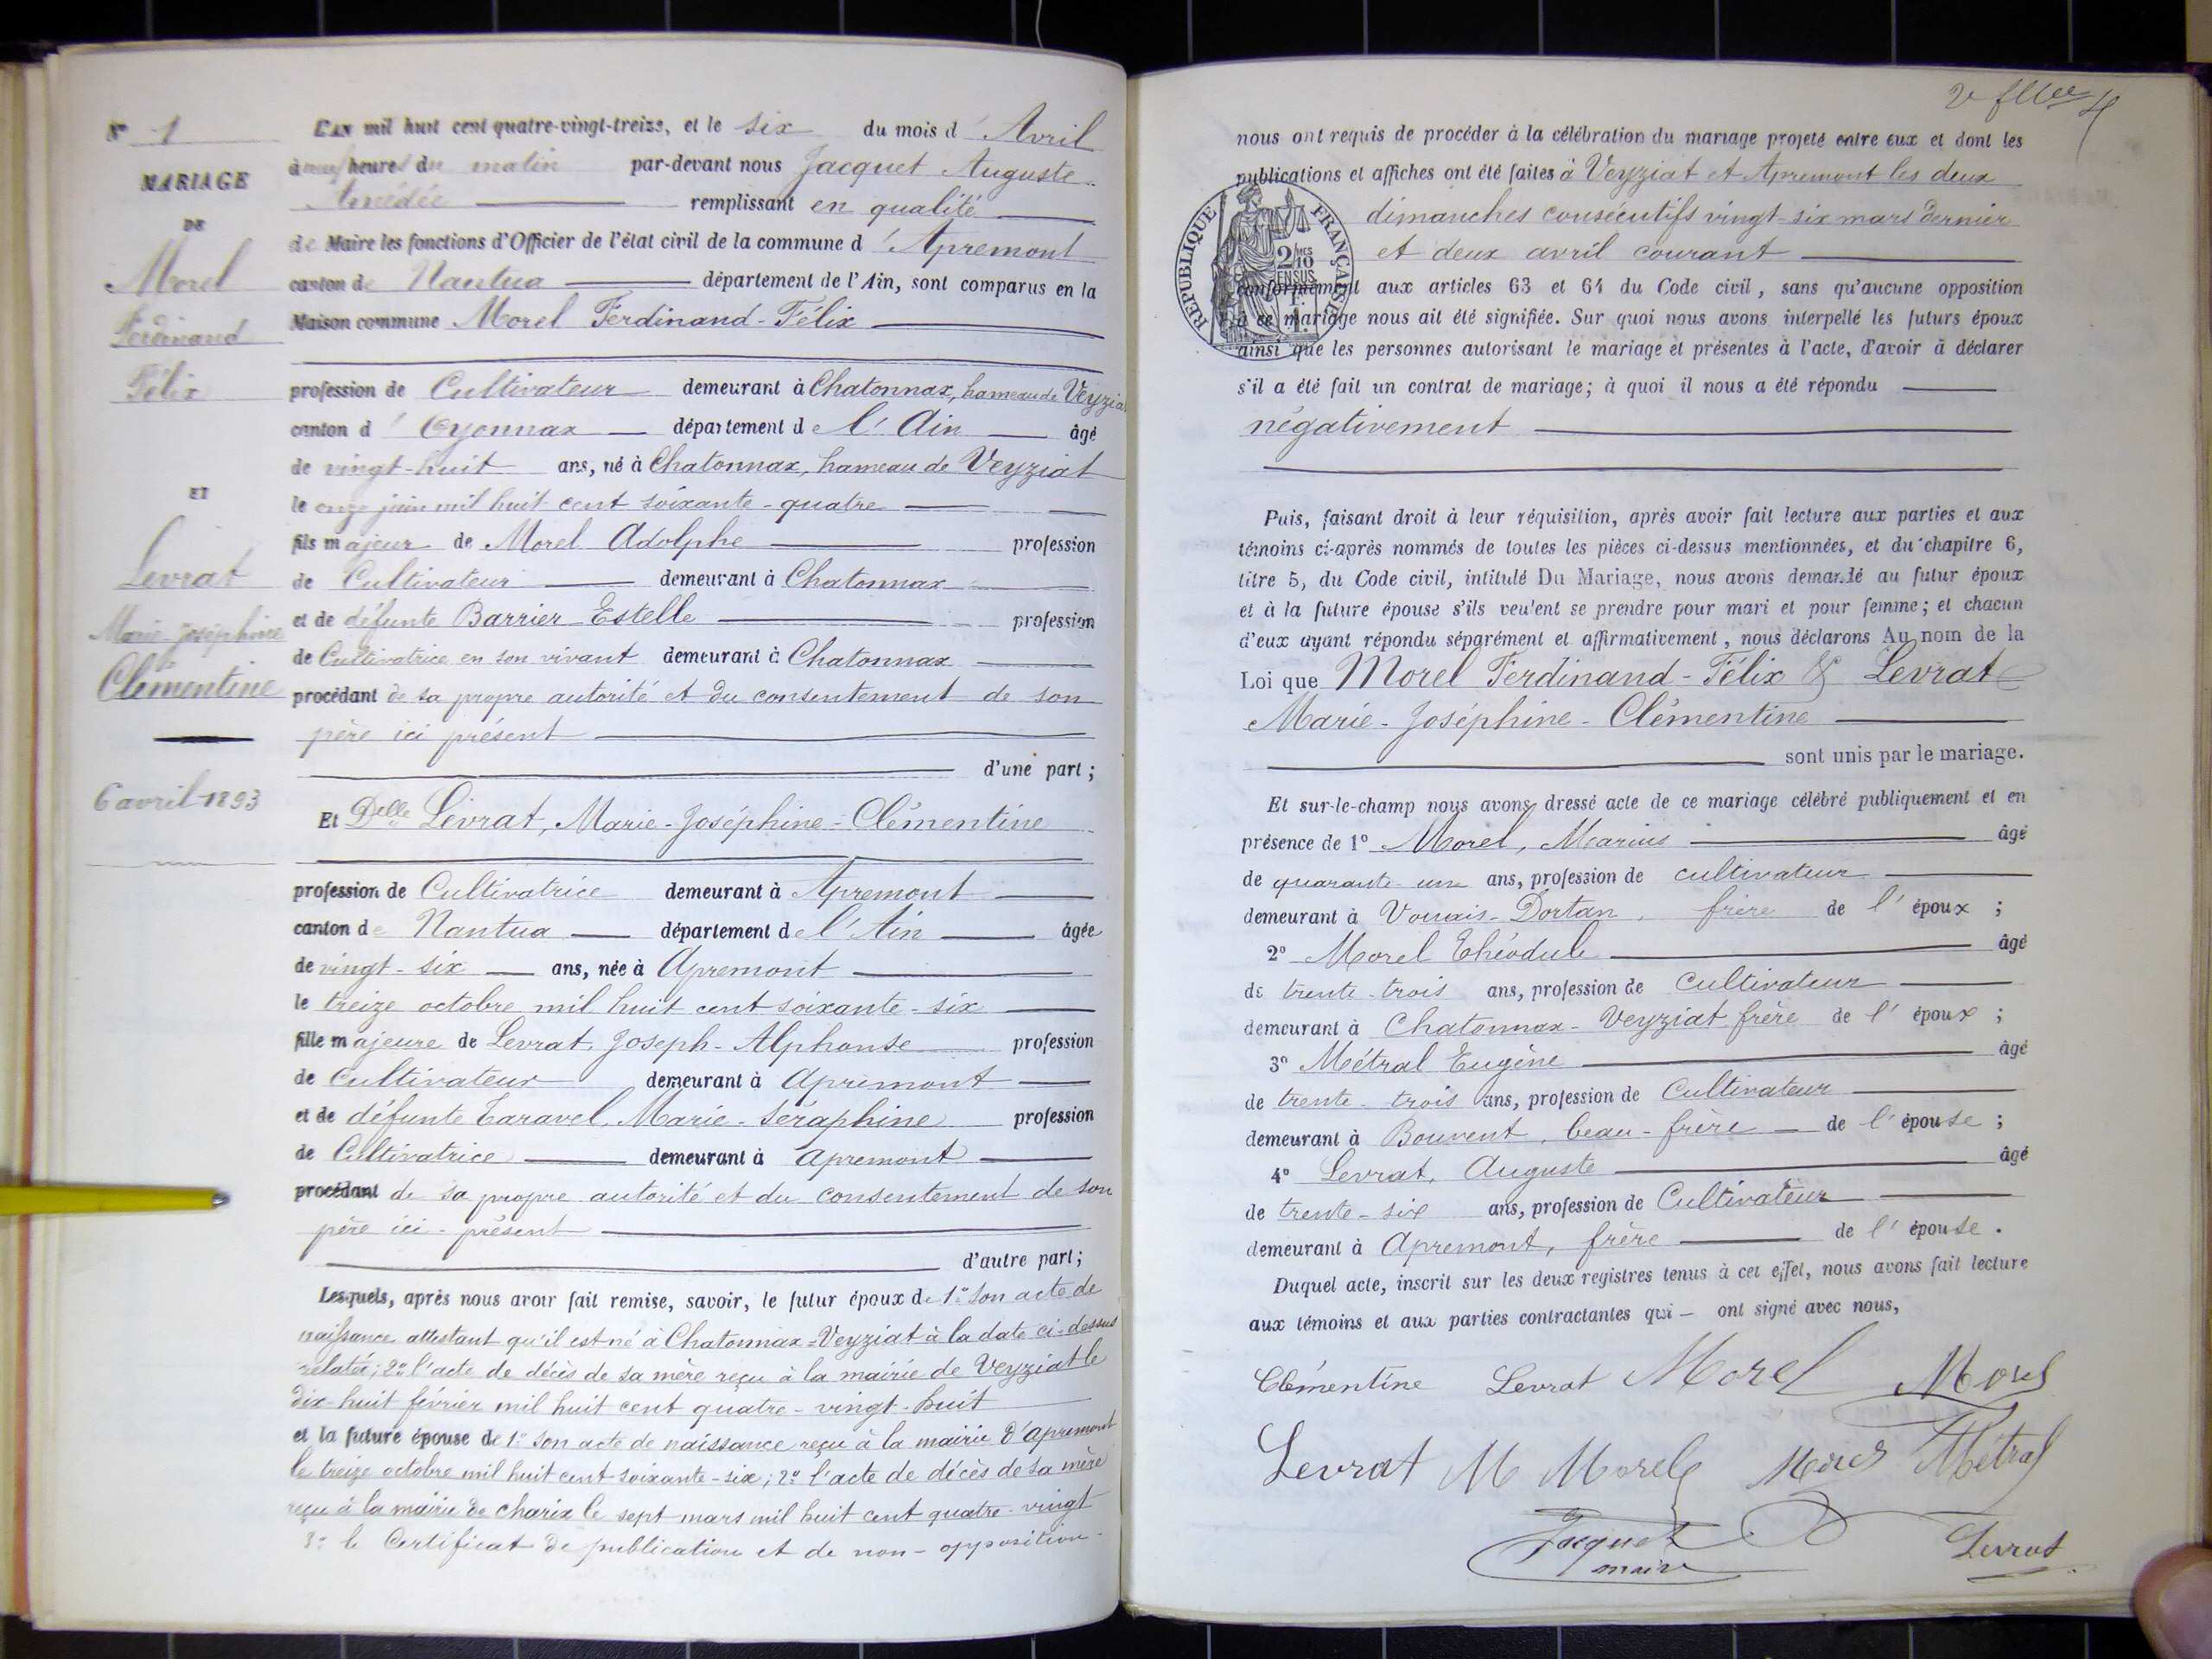 N° 1
MARIAGE
DE
Morel
Ferdinand
Félix
ET
Levrat
Marie-Joséphine
Clémentine
6 avril 1893
L'AN mil huit cent quatre-vingt-treize, et le six du mois d'Avril
à neuf heures du matin par-devant nous Jacquet Auguste
Amédée remplissant en qualité
de Maire les fonctions d'Officier de l'état civil de la commune d'Apremont
canton de Nantua département de l'Ain, sont comparus en la
Maison commune Morel Ferdinand-Félix
profession de Cultivateur demeurant à Chatonnax, hameau de Veyziat
canton d'Oyonnax département de l'Ain âgé
de vingt-huit ans, né à Chatonnax, hameau de Veyziat
le onze juin mil huit cent soixante-quatre
fils majeur de Morel Adolphe profession
de Cultivateur demeurant à Chatonnax
et de défunte Barrier Estelle profession
de Cultivatrice en son vivant demeurant à Chatonnax
procédant de sa propre autorité et du consentement de son
père ici présent
d'une part ;
Et Delle Levrat, Marie-Joséphine-Clémentine
profession de Cultivatrice demeurant à Apremont
canton de Nantua département de l'Ain âgée
de vingt-six ans, née à Apremont
le treize octobre mil huit cent soixante-six
fille majeure de Levrat, Joseph-Alphonse profession
de Cultivateur demeurant à Apremont
et de défunte Taravel, Marie-Séraphine profession
de Cultivatrice demeurant à Apremont
procédant de sa propre autorité et du consentement de son
père ici-présent
d'autre part ;
Lesquels, après nous avoir fait remise, savoir, le futur époux de 1° son acte de
naissance attestant qu'il est né à Chatonnax-Veyziat à la date ci-dessus
relatée ; 2° l'acte de décès de sa mère reçu à la mairie de Veyziat le
dix-huit février mil huit cent quatre-vingt-huit
et la future épouse de 1° son acte de naissance reçu à la mairie d'Apremont
le treize octobre mil huit cent soixante-six ; 2° l'acte de décès de sa mère
reçu à la mairie de Charix le sept mars mil huit cent quatre-vingt
3° le Certificat de publication et de non-opposition
nous ont requis de procéder à la célébration du mariage projeté entre eux et dont les
publications et affiches ont été faites à Veyziat et Apremont les deux
dimanches consécutifs vingt-six mars dernier
et deux avril courant
RÉPUBLIQUE FRANÇAISE
2/10 EN SUS
conformément aux articles 63 et 64 du Code civil, sans qu'aucune opposition
à ce mariage nous ait été signifiée. Sur quoi nous avons interpellé les futurs époux
ainsi que les personnes autorisant le mariage et présentes à l'acte, d'avoir à déclarer
s'il a été fait un contrat de mariage ; à quoi il nous a été répondu
négativement
Puis, faisant droit à leur réquisition, après avoir fait lecture aux parties et aux
témoins ci-après nommés de toutes les pièces ci-dessus mentionnées, et du chapitre 6,
titre 5, du Code civil, intitulé Du Mariage, nous avons demandé au futur époux
et à la future épouse s'ils veulent se prendre pour mari et pour femme ; et chacun
d'eux ayant répondu séparément et affirmativement, nous déclarons Au nom de la
Loi que Morel Ferdinand-Félix & Levrat
Marie-Joséphine-Clémentine
sont unis par le mariage.
Et sur-le-champ nous avons dressé acte de ce mariage célébré publiquement et en
présence de 1° Morel, Marius âgé
de quarante-un ans, profession de cultivateur
demeurant à Vouais-Dortan, frère de l'époux ;
2° Morel Théodule âgé
de trente-trois ans, profession de cultivateur
demeurant à Chatonnax-Veyziat frère de l'époux ;
3° Métral Eugène âgé
de trente-trois ans, profession de Cultivateur
demeurant à Bouvent, beau-frère de l'épouse ;
4° Levrat, Auguste âgé
de trente-six ans, profession de Cultivateur
demeurant à Apremont, frère de l'épouse.
Duquel acte, inscrit sur les deux registres tenus à cet effet, nous avons fait lecture
aux témoins et aux parties contractantes qui ont signé avec nous,
Clémentine Levrat Morel Morel
Levrat M Morel Morel Métral
Jacquet
maire
Levrat